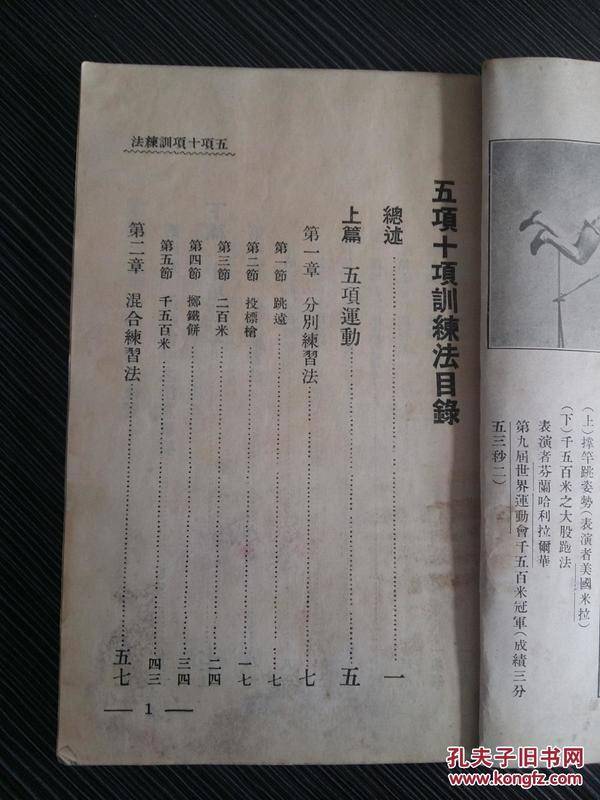 (上)撑竿跳姿勢(表演者美國米拉)
(下)千五百米之大股跑法
表演者芬蘭哈利拉爾華
第九屆世界運動會千五百米冠軍(成績三分
五三秒二)
五項十項訓練法目錄
總述……一
上篇 五項運動……五
第一章 分別練習法……七
第一節 跳遠……七
第二節 投標槍……一七
第三節 二百米……二四
第四節 擲鐵餅……三四
第五節 千五百米……四三
第二章 混合練習法……五七
五項十項訓練法
— 1 —
孔夫子旧书网
www.kongfz.com